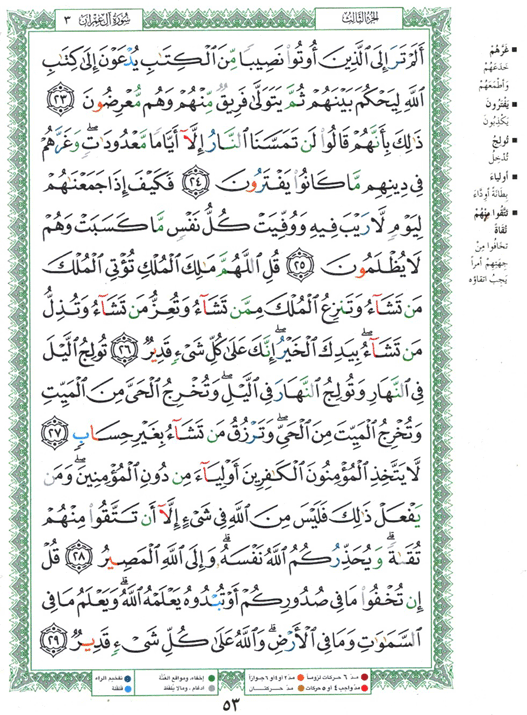 سُورَةُ آلِ عِمْرَان ٣
الجُزءُ الثّالِث
أَلَمْ تَرَ إِلَى الَّذِينَ أُوتُوا نَصِيبًا مِّنَ الْكِتَابِ يُدْعَوْنَ إِلَىٰ كِتَابِ
اللَّهِ لِيَحْكُمَ بَيْنَهُمْ ثُمَّ يَتَوَلَّىٰ فَرِيقٌ مِّنْهُمْ وَهُم مُّعْرِضُونَ ﴿٢٣﴾
ذَٰلِكَ بِأَنَّهُمْ قَالُوا لَن تَمَسَّنَا النَّارُ إِلَّا أَيَّامًا مَّعْدُودَاتٍ ۖ وَغَرَّهُمْ
فِي دِينِهِم مَّا كَانُوا يَفْتَرُونَ ﴿٢٤﴾ فَكَيْفَ إِذَا جَمَعْنَاهُمْ
لِيَوْمٍ لَّا رَيْبَ فِيهِ وَوُفِّيَتْ كُلُّ نَفْسٍ مَّا كَسَبَتْ وَهُمْ
لَا يُظْلَمُونَ ﴿٢٥﴾ قُلِ اللَّهُمَّ مَالِكَ الْمُلْكِ تُؤْتِي الْمُلْكَ
مَن تَشَاءُ وَتَنزِعُ الْمُلْكَ مِمَّن تَشَاءُ وَتُعِزُّ مَن تَشَاءُ وَتُذِلُّ
مَن تَشَاءُ ۖ بِيَدِكَ الْخَيْرُ ۖ إِنَّكَ عَلَىٰ كُلِّ شَيْءٍ قَدِيرٌ ﴿٢٦﴾ تُولِجُ اللَّيْلَ
فِي النَّهَارِ وَتُولِجُ النَّهَارَ فِي اللَّيْلِ ۖ وَتُخْرِجُ الْحَيَّ مِنَ الْمَيِّتِ
وَتُخْرِجُ الْمَيِّتَ مِنَ الْحَيِّ ۖ وَتَرْزُقُ مَن تَشَاءُ بِغَيْرِ حِسَابٍ ﴿٢٧﴾
لَّا يَتَّخِذِ الْمُؤْمِنُونَ الْكَافِرِينَ أَوْلِيَاءَ مِن دُونِ الْمُؤْمِنِينَ ۖ وَمَن
يَفْعَلْ ذَٰلِكَ فَلَيْسَ مِنَ اللَّهِ فِي شَيْءٍ إِلَّا أَن تَتَّقُوا مِنْهُمْ
تُقَاةً ۗ وَيُحَذِّرُكُمُ اللَّهُ نَفْسَهُ ۗ وَإِلَى اللَّهِ الْمَصِيرُ ﴿٢٨﴾ قُلْ
إِن تُخْفُوا مَا فِي صُدُورِكُمْ أَوْ تُبْدُوهُ يَعْلَمْهُ اللَّهُ ۗ وَيَعْلَمُ مَا فِي
السَّمَاوَاتِ وَمَا فِي الْأَرْضِ ۗ وَاللَّهُ عَلَىٰ كُلِّ شَيْءٍ قَدِيرٌ ﴿٢٩﴾
غَرَّهُمْ
خَدَعَهُمْ
وَأَطْمَعَهُمْ
يَفْتَرُونَ
يَكْذِبُونَ
تُولِجُ
تُدْخِلُ
أَوْلِيَاءَ
بِطَانَةً أوِدَّاءَ
تَتَّقُوا مِنْهُمْ
تُقَاةً
تَخَافُوا مِنْ
جِهَتِهِمْ أمْراً
يَجِبُ اتّقاؤه
مدّ ٦ حركات لزوماً
مدّ ٢ أو ٤ أو ٦ جوازاً
إخفاء، ومواقع الغنّة
تفخيم الراء
مدّ واجب ٤ أو ٥ حركات
مدّ حركتان
إدغام، وما لا يُلفظ
قلقلة
٥٣